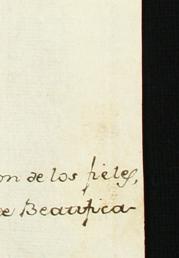 on de los fieles,
de Beatifica